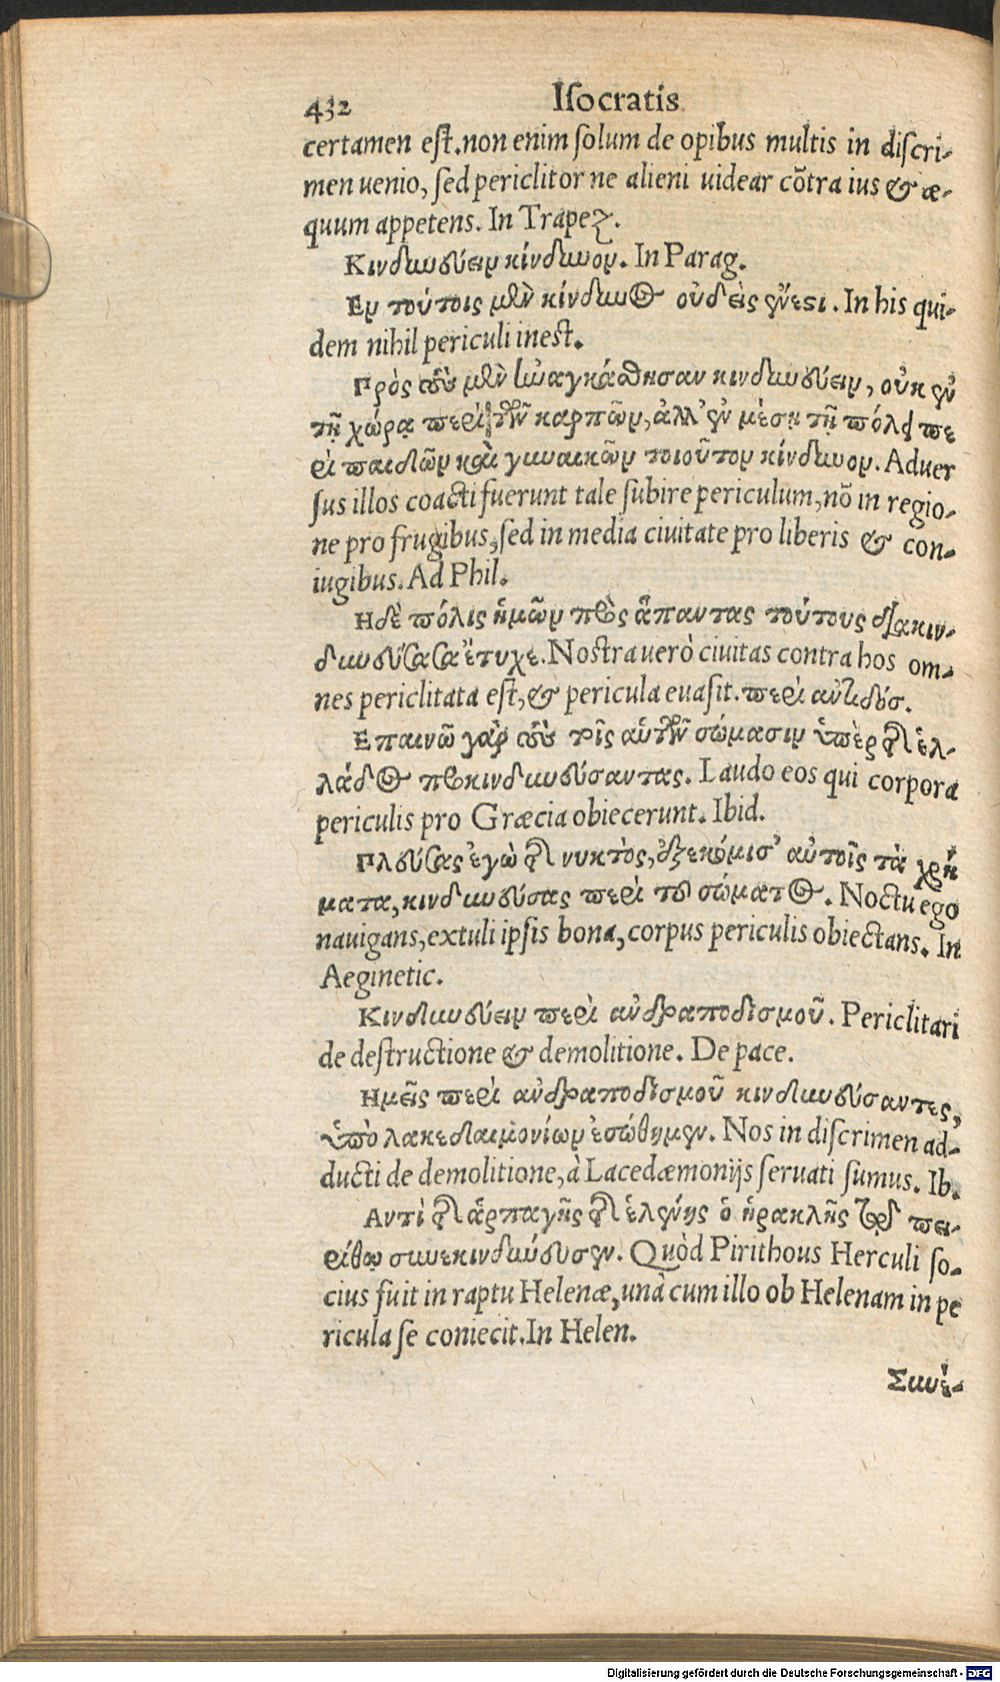 432 Iſocratis
certamen eſt.non enim ſolum de opibus multis in diſcri-
men uenio, ſed periclitor ne alieni uidear cõtra ius & æ-
quum appetens. In Trapez.
Κινδυνεύειν κίνδυνον. In Parag.
Εν τούτοις μὲν κίνδυνος οὐδεὶς ἔνεστι. In his qui-
dem nihil periculi inest.
Πρὸς οὓς μὲν ἠναγκάσθησαν κινδυνεύειν, οὐκ ἐν
τῇ χώρᾳ περὶ τῶν καρπῶν, ἀλλ' ἐν μέσῃ τῇ πόλει πε
ρὶ παιδίων καὶ γυναικῶν τοιοῦτον κίνδυνον. Aduer
ſus illos coacti fuerunt tale ſubire periculum, nõ in regio-
ne pro frugibus, ſed in media ciuitate pro liberis & con-
iugibus. Ad Phil.
Ηδὲ πόλις ἡμῶν πρὸς ἅπαντας τούτους διακιν-
δυνεύσασα ἔτυχε. Nostra uerò ciuitas contra hos om-
nes periclitata eſt, & pericula euaſit. περὶ αντιδόσ.
Επαινῶ γὰρ τοὺς τοῖς αὑτῶν σώμασιν ὑπὲρ τῆς ἑλ-
λάδος προκινδυνεύσαντας. Laudo eos qui corpora
periculis pro Græcia obiecerunt. Ibid.
Πλεύσας ἐγὼ τῆς νυκτὸς, ἐξεκόμισ' αὐτοῖς τὰ χρή
ματα, κινδυνεύσας περὶ τοῦ σώματος. Noctu ego
nauigans, extuli ipſis bona, corpus periculis obiectans. In
Aeginetic.
Κινδυνεύειν περὶ ανδραποδισμοῦ. Periclitari
de deſtructione & demolitione. De pace.
Ημεῖς περὶ ανδραποδισμοῦ κινδυνεύσαντες,
ὑπὸ λακεδαιμονίων ἐσώθημεν. Nos in diſcrimen ad-
ducti de demolitione, à Lacedæmonijs ſeruati ſumus. Ib.
Αντὶ τῆς ἁρπαγῆς τῆς ἑλένης ὁ ἡρακλῆς τῷ πει-
ρίθῳ συνεκινδύνευσεν. Quòd Pirithous Herculi ſo-
cius fuit in raptu Helenæ, unà cum illo ob Helenam in pe
ricula ſe coniecit. In Helen.
Συνέ-
Digitalisierung gefördert durch die Deutsche Forschungsgemeinschaft - DFG